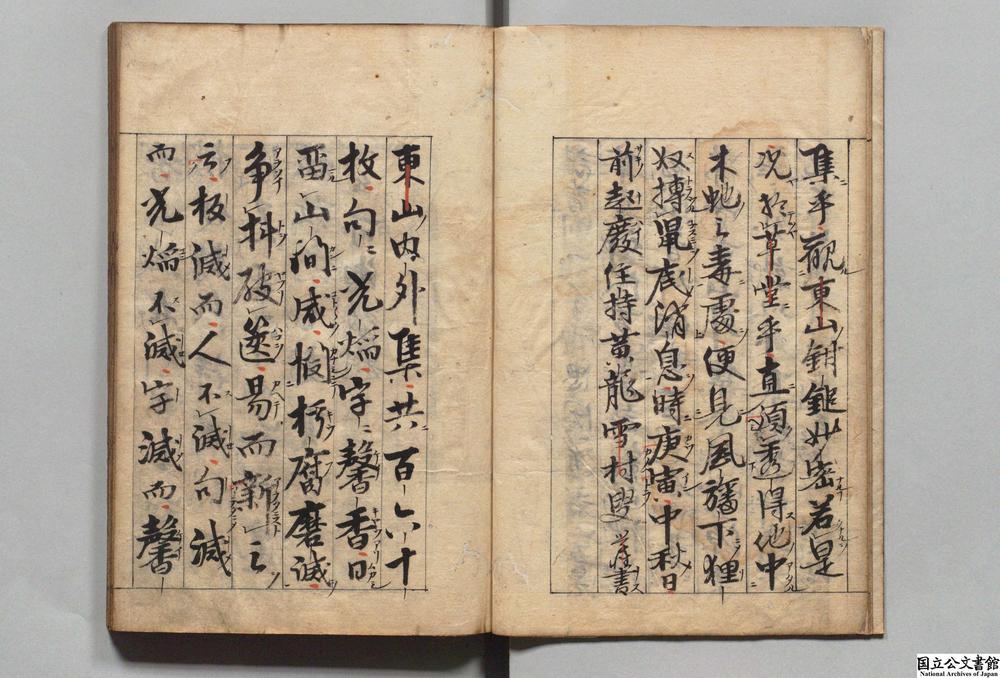 隼乎観東山鉗鎚妙密若是
况於草堂乎直須透得他中
木虵之毒處便見風旛下狸
奴搏鼠底消息時庚寅中秋日
前起廢住持黄龍雪村叟書
東山内外集共百六十
枚句々光焔字々馨香日
畄山間咸板朽腐磨滅
争抖擻遂易而新之
云板滅而人不滅句滅
而光焔不滅字滅而馨
国立公文書館
National Archives of Japan